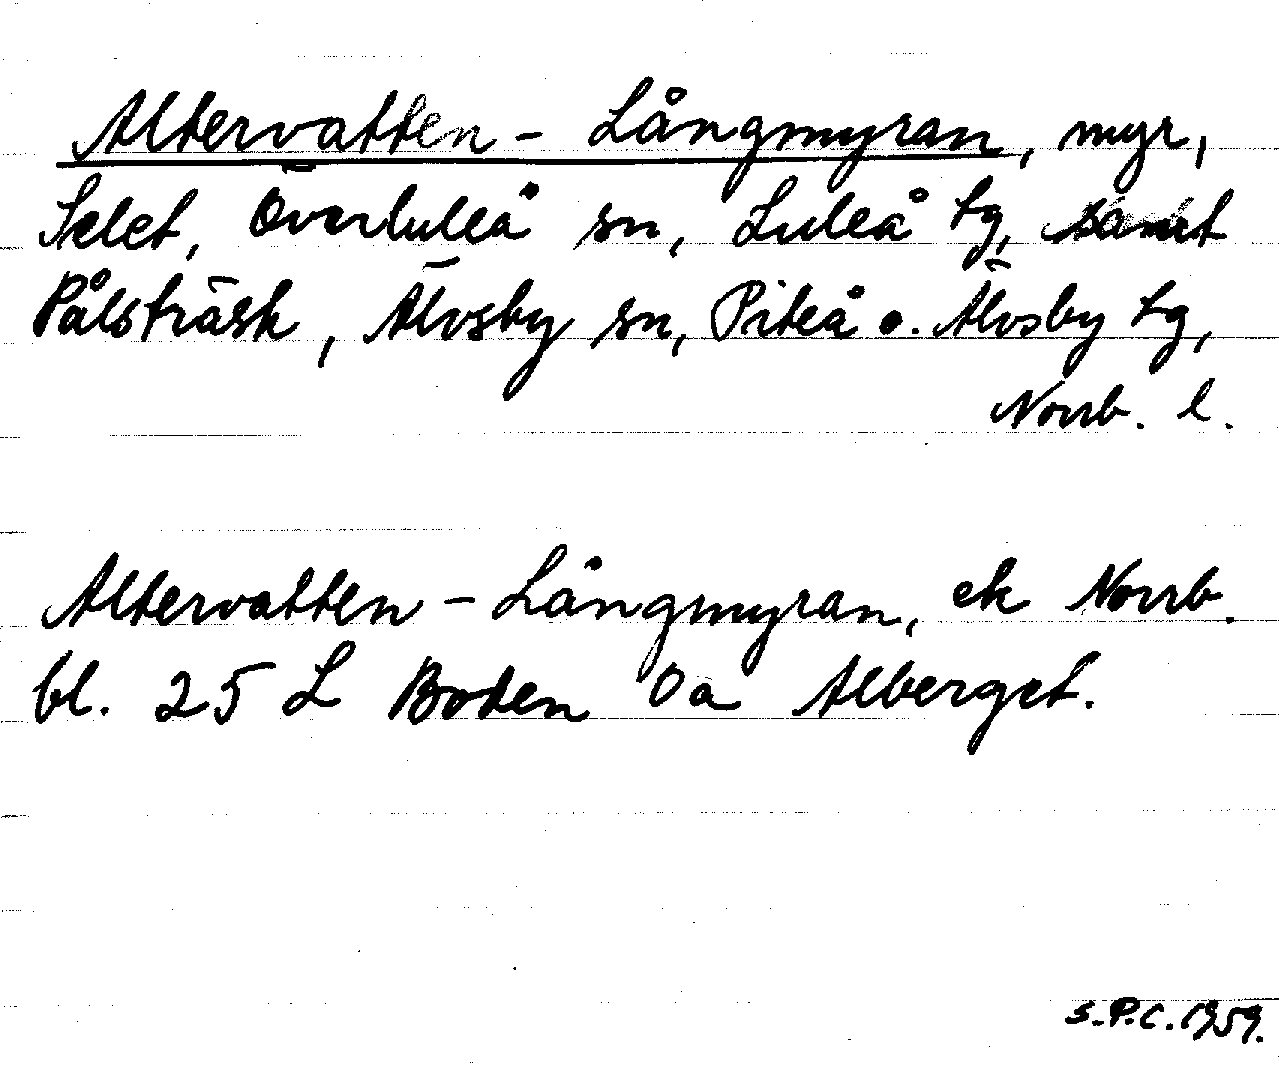 Altervatten - Långmyran, myr,
Selet, Överluleå sn, Luleå tg, samt
Pålsträsk, Älvsby sn, Piteå o. Älvsby tg,
Norrb. l.
Altervatten - Långmyran, ek Norrb.
bl. 25 L Boden 0a Alberget.
S.P.C. 1959.